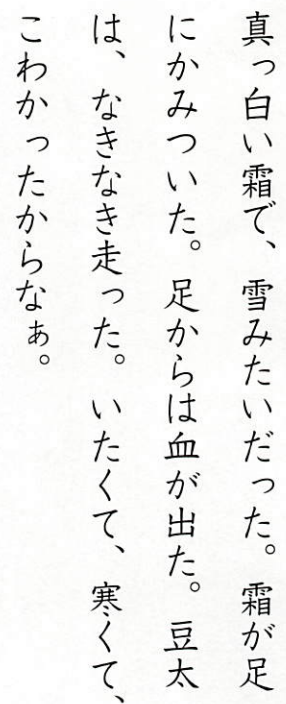 真っ白い霜で、雪みたいだった。霜が足
にかみついた。足からは血が出た。豆太
は、なきなき走った。いたくて、寒くて、
こわかったからなぁ。